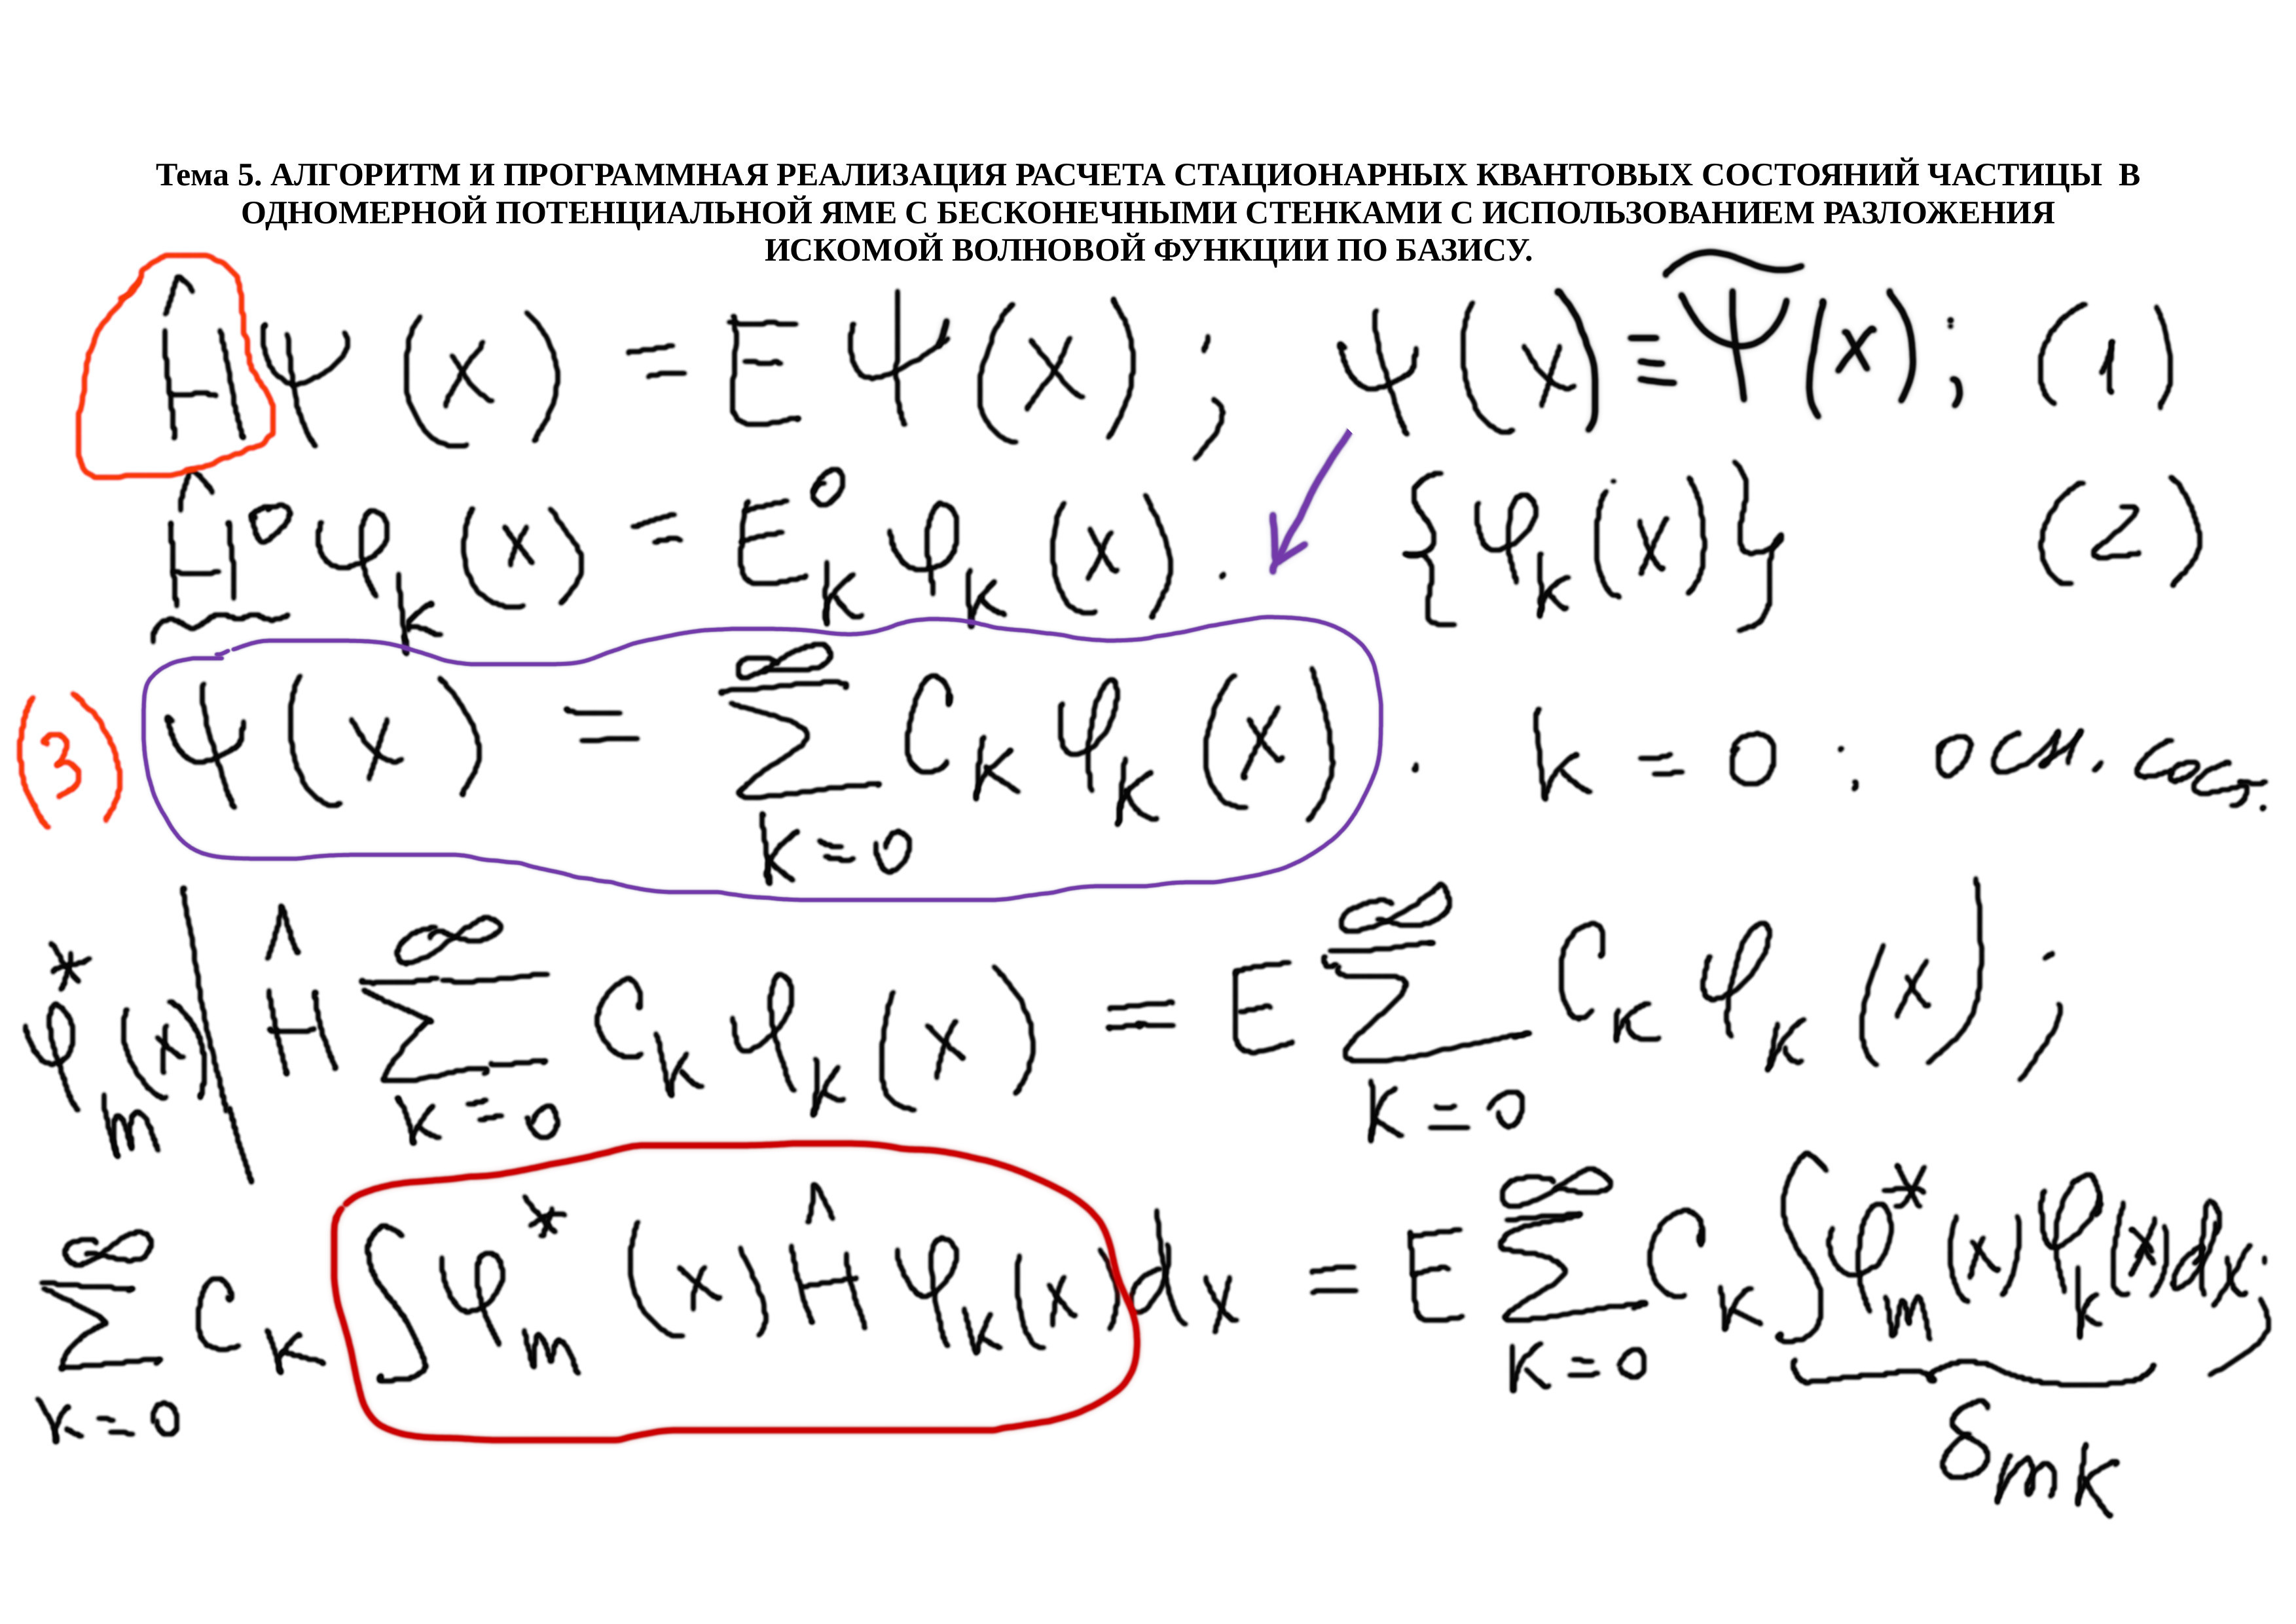 Тема 5. АЛГОРИТМ И ПРОГРАММНАЯ РЕАЛИЗАЦИЯ РАСЧЕТА СТАЦИОНАРНЫХ КВАНТОВЫХ СОСТОЯНИЙ ЧАСТИЦЫ В
ОДНОМЕРНОЙ ПОТЕНЦИАЛЬНОЙ ЯМЕ С БЕСКОНЕЧНЫМИ СТЕНКАМИ С ИСПОЛЬЗОВАНИЕМ РАЗЛОЖЕНИЯ
ИСКОМОЙ ВОЛНОВОЙ ФУНКЦИИ ПО БАЗИСУ.
Ĥψ(x) = Eψ(x); ψ(x) ≡ \widetilde{Ψ}(x); (1)
Ĥ^0 φ_k(x) = E^0_k φ_k(x). {φ_k(x)} (2)
(3) ψ(x) = ∑_{k=0}^{∞} C_k φ_k(x). k = 0: осн. сост.
φ*_m(x) | Ĥ ∑_{k=0}^{∞} C_k φ_k(x) = E ∑_{k=0}^{∞} C_k φ_k(x);
∑_{k=0}^{∞} C_k ∫φ*_m(x) Ĥ φ_k(x) dx = E ∑_{k=0}^{∞} C_k ∫φ*_m(x) φ_k(x) dx;
δ_{mk}